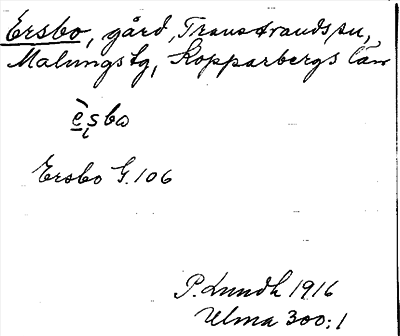 Ersbo, gård, Transtrands sn,
Malungs tg, Kopparbergs län
Ersbo G. 106
P. Lundh 1916
Ulma 300:1